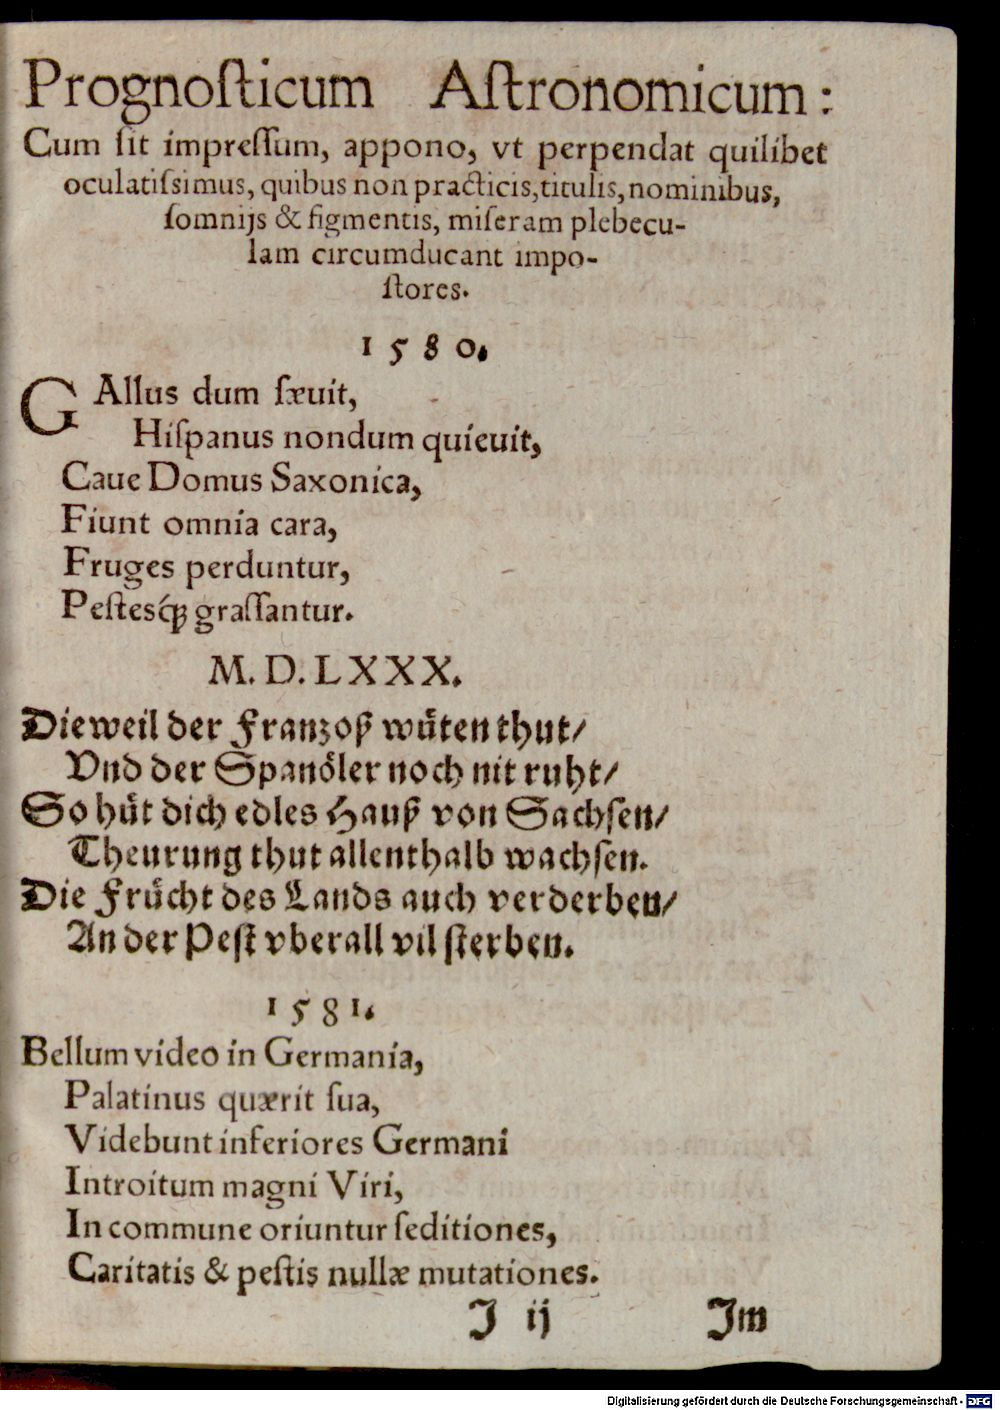 Prognoſticum Aſtronomicum:
Cum ſit impreſſum, appono, vt perpendat quilibet
oculatiſsimus, quibus non practicis, titulis, nominibus,
ſomnijs & figmentis, miſeram plebecu-
lam circumducant impo-
ſtores.
1580.
GAllus dum ſæuit,
Hiſpanus nondum quieuit,
Caue Domus Saxonica,
Fiunt omnia cara,
Fruges perduntur,
Peſtesq́ꝫ graſſantur.
M. D. LXXX.
Dieweil der Franzoß wuͤten thut/
Vnd der Spanoͤler noch nit ruht/
So huͤt dich edles Hauß von Sachſen/
Theurung thut allenthalb wachſen.
Die Fruͤcht des Lands auch verderben/
An der Peſt vberall vil ſterben.
1581.
Bellum video in Germania,
Palatinus quærit ſua,
Videbunt inferiores Germani
Introitum magni Viri,
In commune oriuntur ſeditiones,
Caritatis & peſtis nullæ mutationes.
J ij Jm
Digitalisierung gefördert durch die Deutsche Forschungsgemeinschaft - DFG